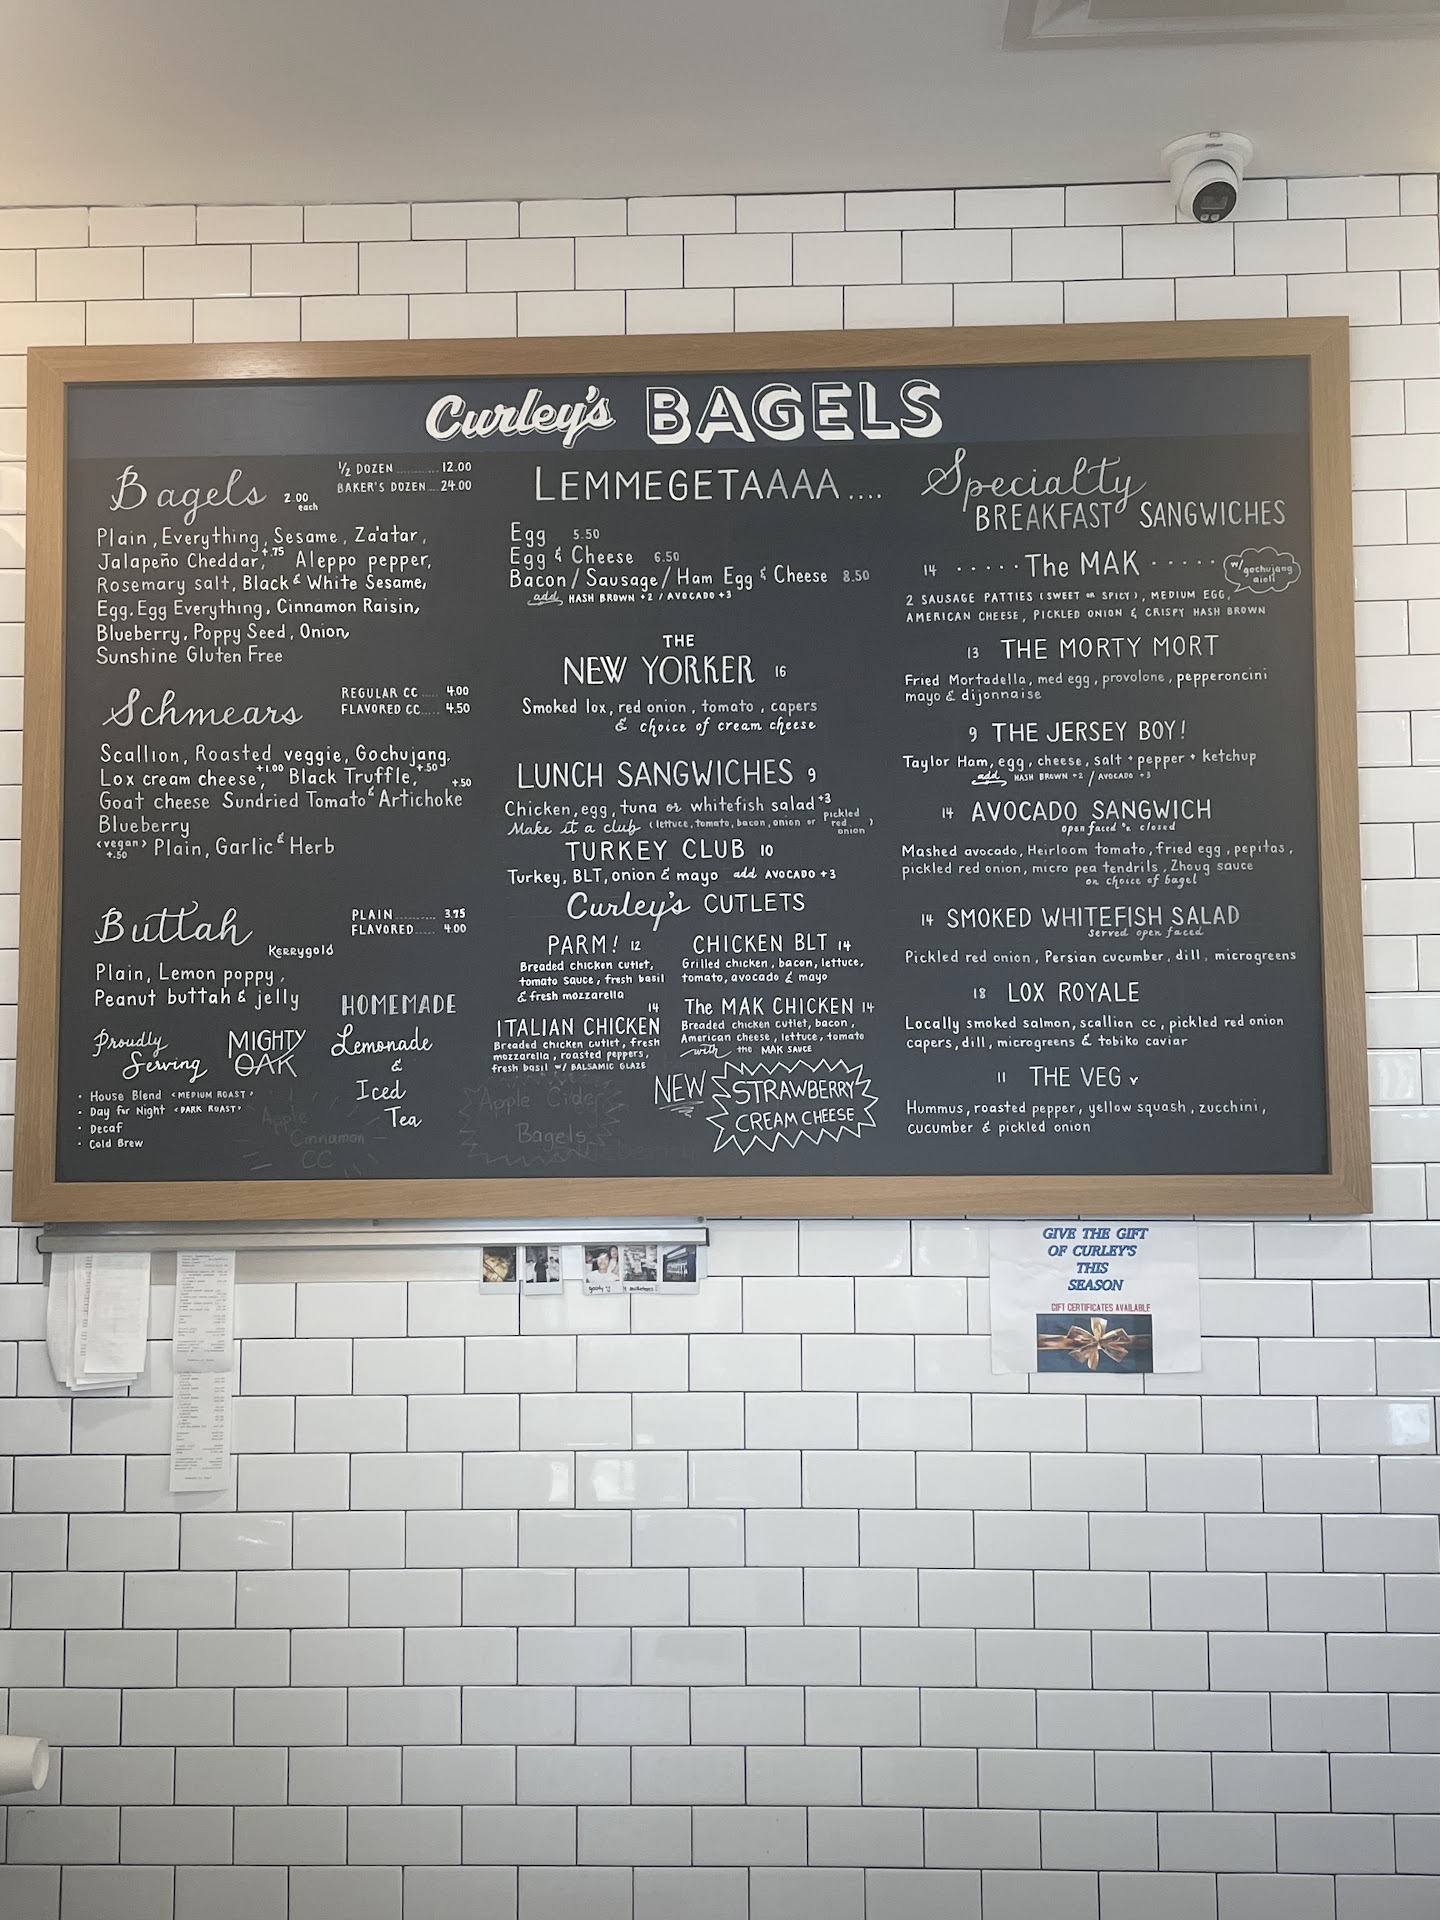 Curley's BAGELS
Bagels 2.00 each
1/2 DOZEN ........ 12.00
BAKER'S DOZEN ... 24.00
Plain, Everything, Sesame, Za'atar,
Jalapeño Cheddar, +.75 Aleppo pepper,
Rosemary salt, Black & White Sesame,
Egg, Egg Everything, Cinnamon Raisin,
Blueberry, Poppy Seed, Onion,
Sunshine Gluten Free
Schmears
REGULAR CC ..... 4.00
FLAVORED CC .... 4.50
Scallion, Roasted veggie, Gochujang,
Lox cream cheese, +1.00 Black Truffle, +.50
Goat cheese Sundried Tomato & Artichoke +.50
Blueberry
<vegan> +.50 Plain, Garlic & Herb
Buttah Kerrygold
PLAIN .......... 3.75
FLAVORED ..... 4.00
Plain, Lemon poppy,
Peanut buttah & jelly
Proudly Serving
MIGHTY OAK
• House Blend <MEDIUM ROAST>
• Day for Night <DARK ROAST>
• Decaf
• Cold Brew
HOMEMADE
Lemonade
&
Iced
Tea
Apple
Cinnamon
CC
LEMMEGETAAAA....
Egg 5.50
Egg & Cheese 6.50
Bacon/Sausage/Ham Egg & Cheese 8.50
add HASH BROWN +2 / AVOCADO +3
THE
NEW YORKER 16
Smoked lox, red onion, tomato, capers
& choice of cream cheese
LUNCH SANGWICHES 9
Chicken, egg, tuna or whitefish salad +3
Make it a club (lettuce, tomato, bacon, onion or pickled red onion)
TURKEY CLUB 10
Turkey, BLT, onion & mayo add AVOCADO +3
Curley's CUTLETS
PARM! 12
Breaded chicken cutlet,
tomato sauce, fresh basil
& fresh mozzarella
14
ITALIAN CHICKEN
Breaded chicken cutlet, fresh
mozzarella, roasted peppers,
fresh basil w/ BALSAMIC GLAZE
CHICKEN BLT 14
Grilled chicken, bacon, lettuce,
tomato, avocado & mayo
The MAK CHICKEN 14
Breaded chicken cutlet, bacon,
American cheese, lettuce, tomato
with the MAK SAUCE
Apple Cider
Bagels
NEW STRAWBERRY
CREAM CHEESE
Specialty
BREAKFAST SANGWICHES
14 ..... The MAK ..... w/ gochujang aioli
2 SAUSAGE PATTIES (SWEET OR SPICY), MEDIUM EGG,
AMERICAN CHEESE, PICKLED ONION & CRISPY HASH BROWN
13 THE MORTY MORT
Fried Mortadella, med egg, provolone, pepperoncini
mayo & dijonnaise
9 THE JERSEY BOY!
Taylor Ham, egg, cheese, salt + pepper + ketchup
add HASH BROWN +2 / AVOCADO +3
14 AVOCADO SANGWICH
open faced or closed
Mashed avocado, Heirloom tomato, fried egg, pepitas,
pickled red onion, micro pea tendrils, Zhoug sauce
on choice of bagel
14 SMOKED WHITEFISH SALAD
served open faced
Pickled red onion, Persian cucumber, dill, microgreens
18 LOX ROYALE
Locally smoked salmon, scallion cc, pickled red onion
capers, dill, microgreens & tobiko caviar
11 THE VEG v
Hummus, roasted pepper, yellow squash, zucchini,
cucumber & pickled onion
GIVE THE GIFT
OF CURLEY'S
THIS
SEASON
GIFT CERTIFICATES AVAILABLE